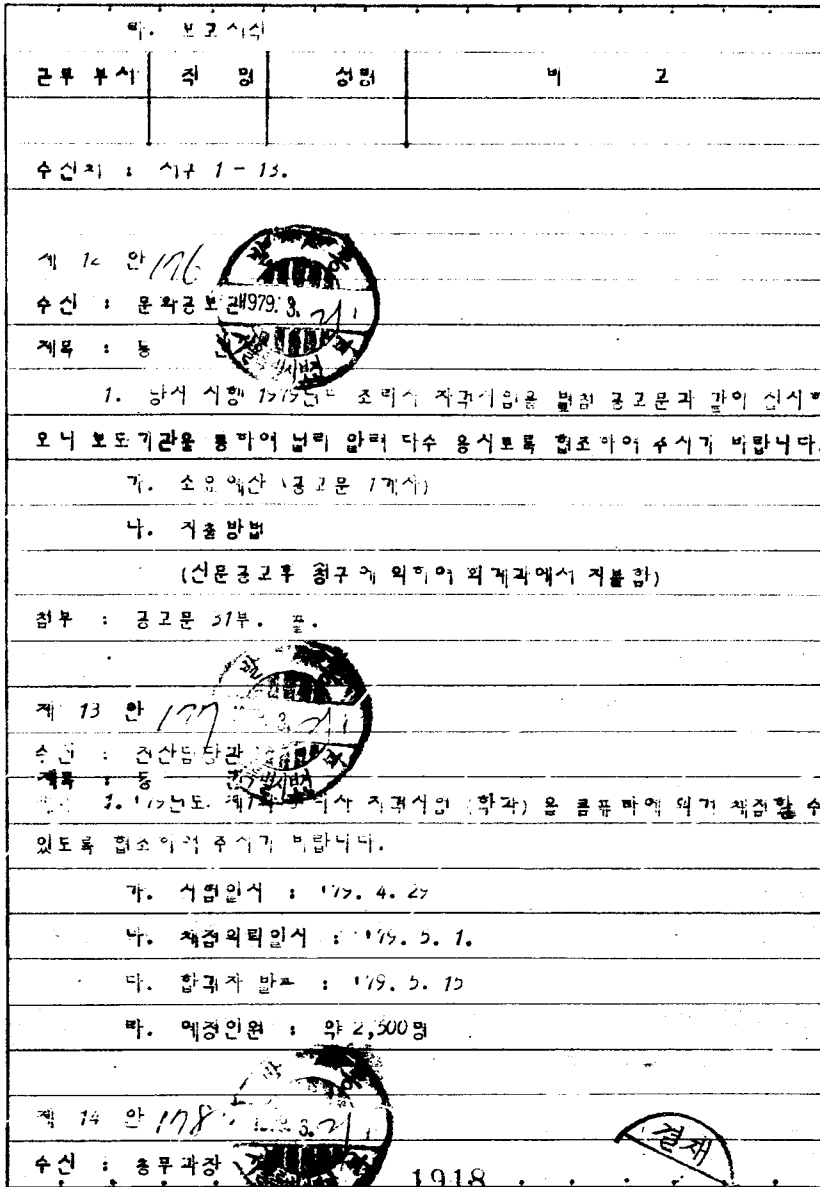 라. 보고서식
근무 부서 직 명 성명 비 고
수신처 : 시구 1 - 13.
제 12 안 176
수신 : 문화공보관 1979. 3. 21
제목 : 동 건
1. 당시 시행 1979년도 조리사 자격시험을 별첨 공고문과 같이 실시하
오니 보도기관을 통하여 널리 알려 다수 응시토록 협조하여 주시기 바랍니다.
가. 소요예산 (공고문 1개사)
나. 지출방법
(신문공고후 청구에 의하여 회계과에서 지불함)
첨부 : 공고문 31부. 끝.
제 13 안 177 3. 21
수신 : 전산담당관
제목 : 동 건
1. '79년도 제1회 조리사 자격시험 (학과) 을 콤퓨타에 의거 채점할 수
있도록 협조하여 주시기 바랍니다.
가. 시험일시 : '79. 4. 29
나. 채점의뢰일시 : '79. 5. 1.
다. 합격자 발표 : '79. 5. 15
라. 예정인원 : 약 2,500명
제 14 안 178 3. 21
수신 : 총무과장
결재
1918